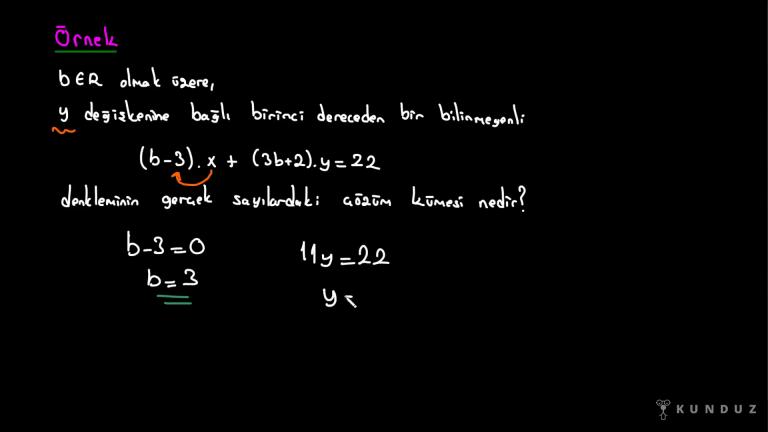 Örnek
b∈R olmak üzere,
y değişkenine bağlı birinci dereceden bir bilinmeyenli
(b-3).x + (3b+2).y=22
denkleminin gerçek sayılardaki çözüm kümesi nedir?
b-3=0
11y=22
b=3
y=
KUNDUZ